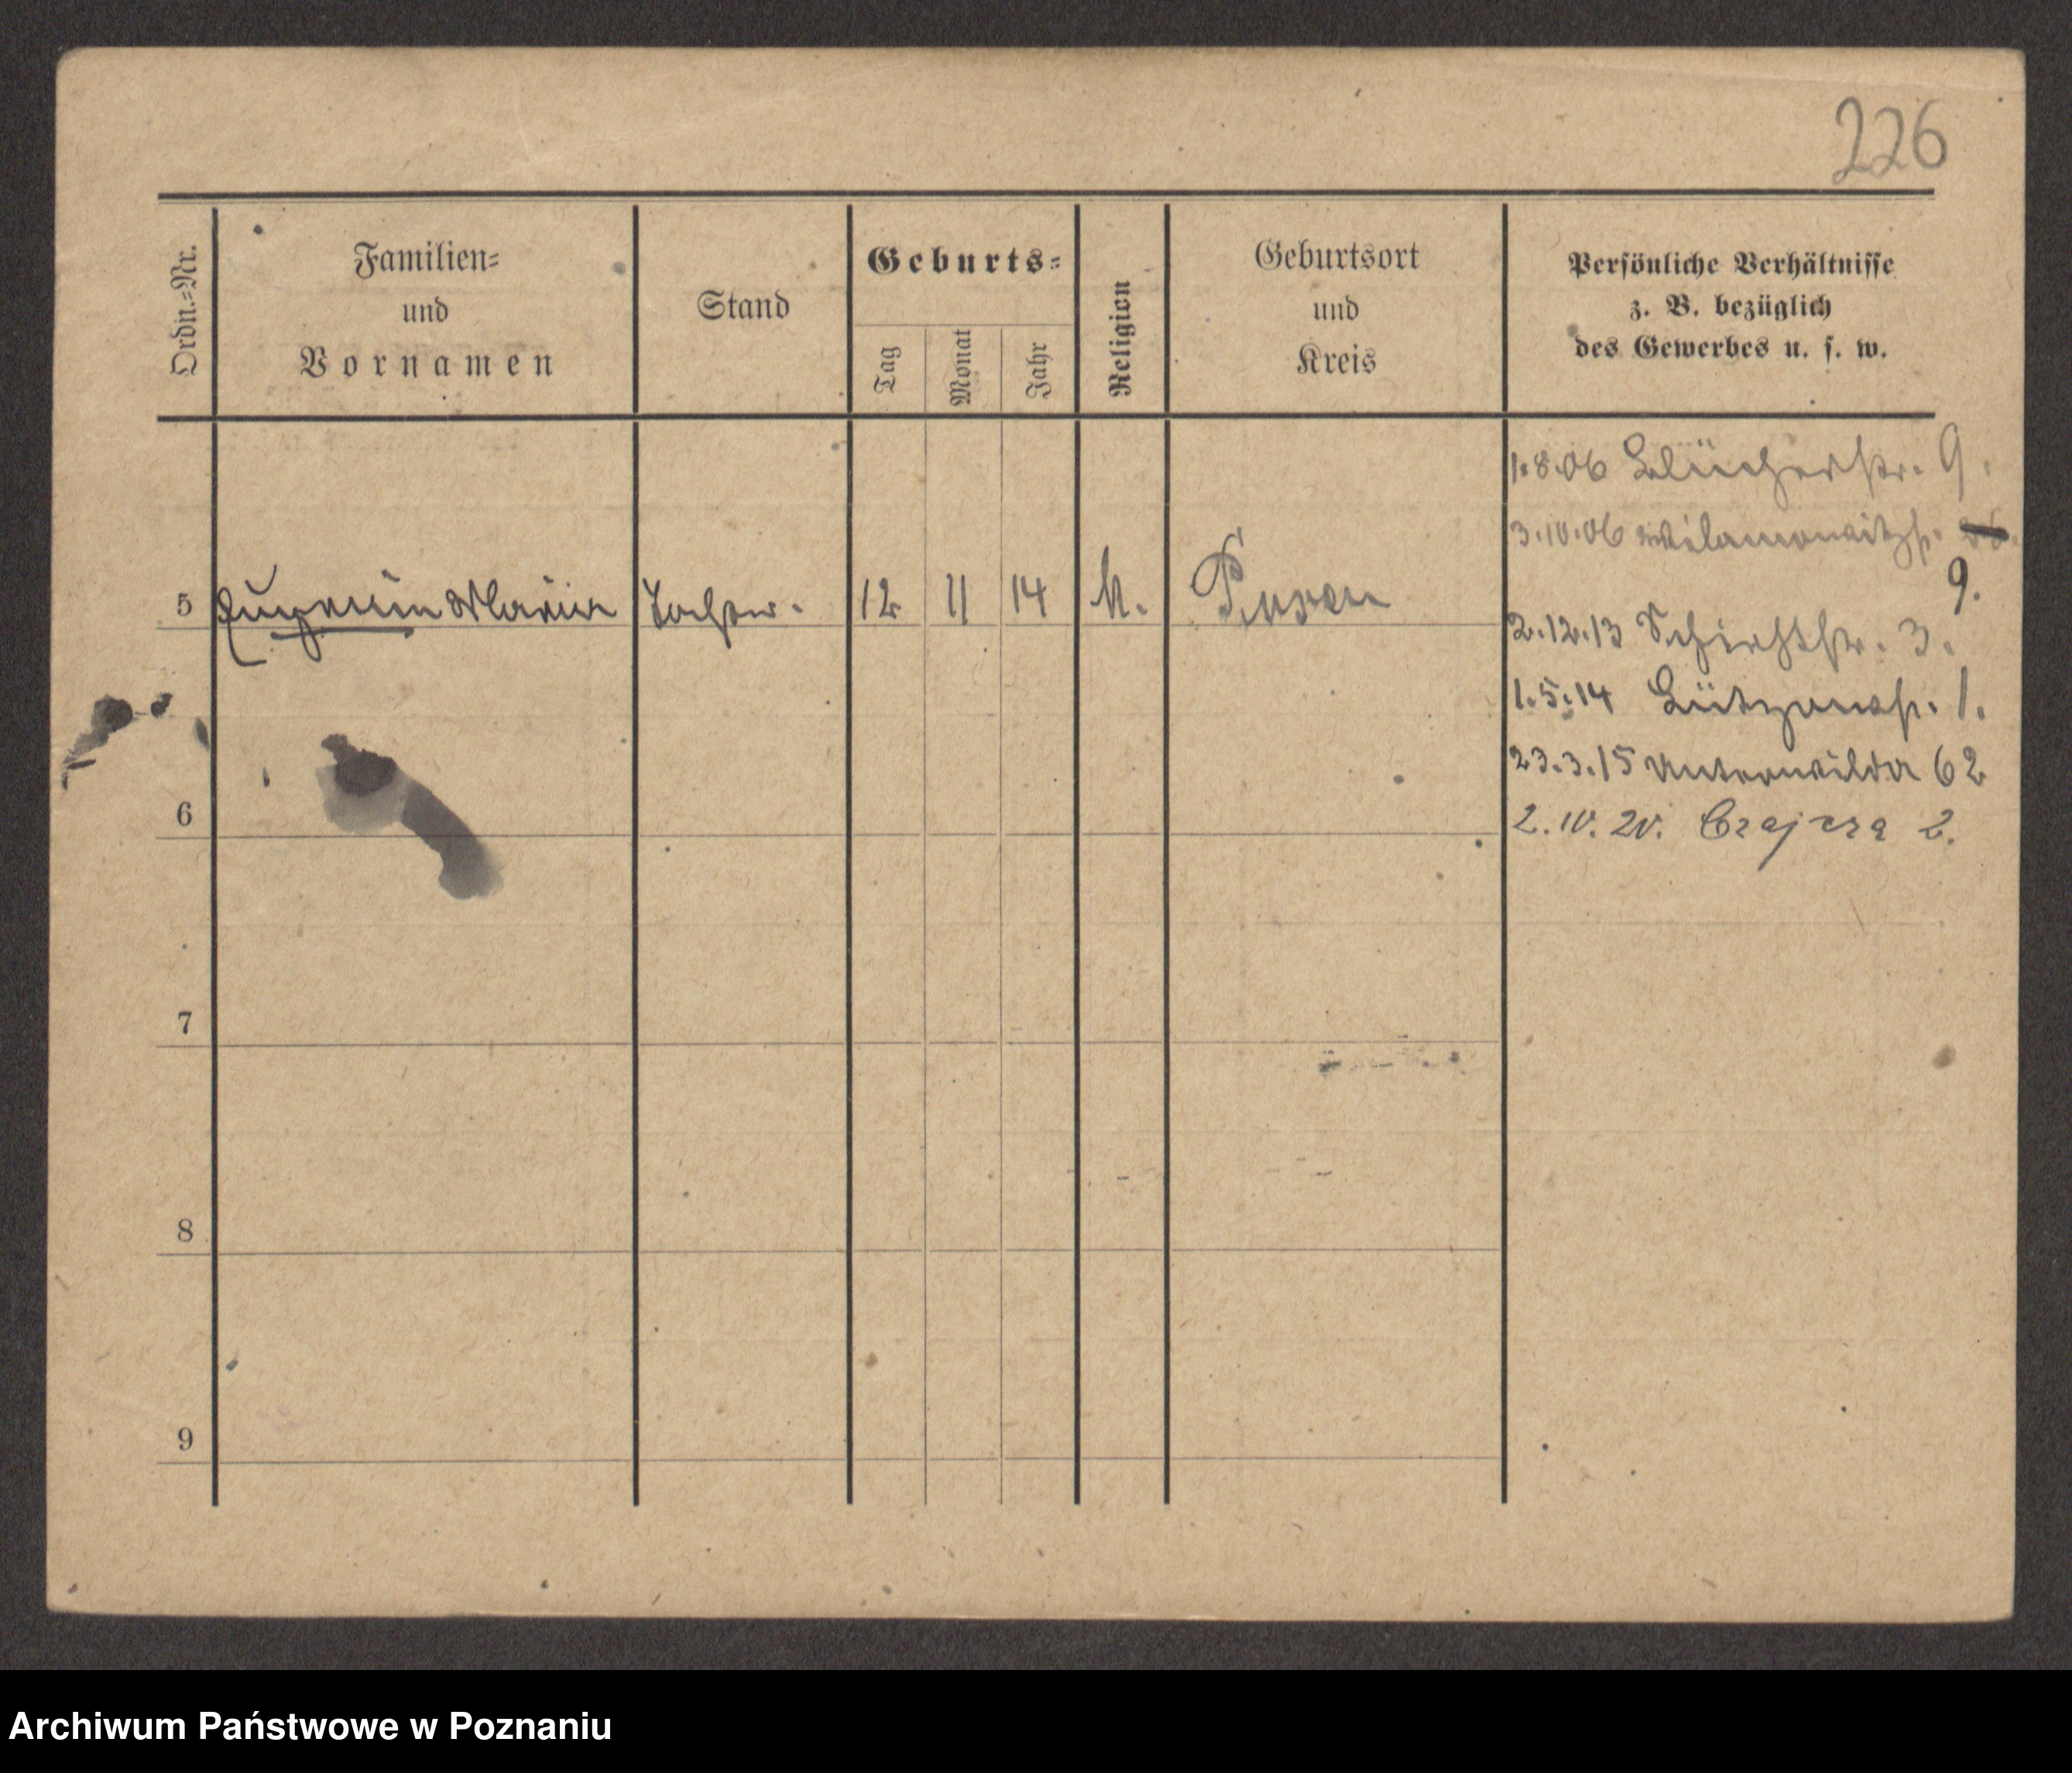 226
Ordn.-Nr.
Familien-
und
Vornamen
Stand
Geburts-
Tag
Monat
Jahr
Religion
Geburtsort
und
Kreis
Persönliche Verhältnisse
z. B. bezüglich
des Gewerbes u. s. w.
1.8.06 Blücherstr. 9.
3.10.06 Wilamowitzstr.
9.
5 Eugenia Maria Tochter. 12 11 14 k. Posen
2.12.13 3.
1.5.14 Lützowstr. 1.
23.3.15 Unterwilda 62
6
2.10.20. Czajcza 2.
7
8
9
Archiwum Państwowe w Poznaniu